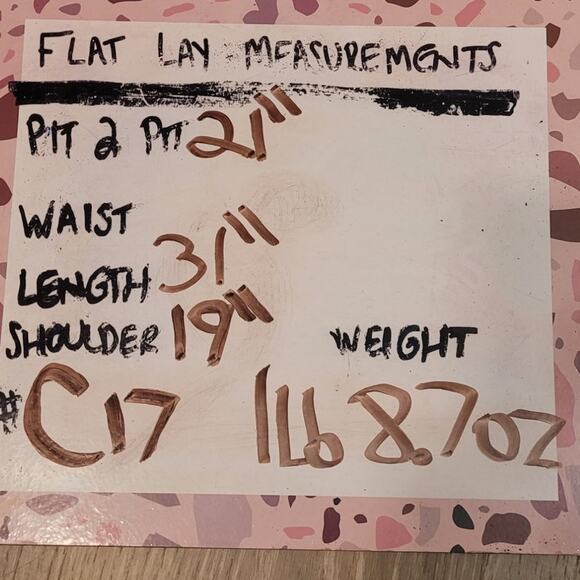 FLAT LAY MEASUREMENTS
PIT 2 PIT 21"
WAIST
LENGTH 31"
SHOULDER 19"
WEIGHT
#C17 1Lb 8.7oz